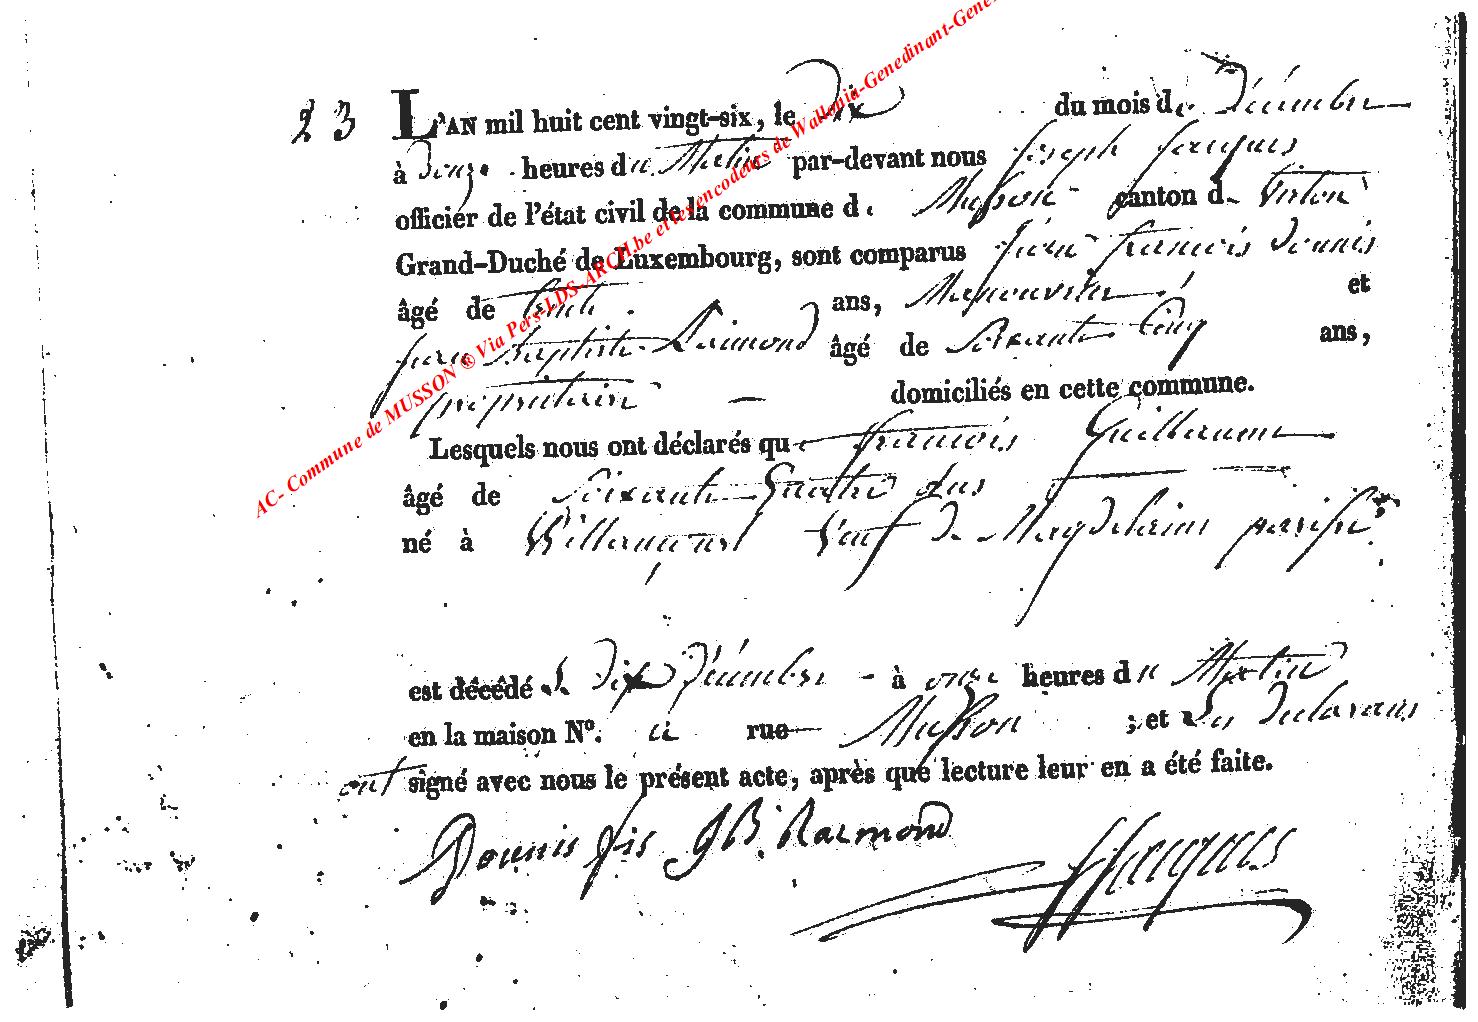 23 L'AN mil huit cent vingt-six, le Dix du mois de Décembre
à Douze heures du Matin par-devant nous Joseph Jacques
officier de l'état civil de la commune de Musson canton de Virton
Grand-Duché de Luxembourg, sont comparus Jean francois Dounis
âgé de trente ans, Manouvrier et
Jean Baptiste Raimond âgé de Soixante Cinq ans,
propriétaire domiciliés en cette commune.
Lesquels nous ont déclarés que francois Guillaume
âgé de Soixante Quatre ans
né à Villancourt Veuf de Magdelaine parisse
est décédé le Dix Décembre à onze heures du Matin
en la maison Nº. à rue Musson ; et Les Déclarans
ont signé avec nous le présent acte, après que lecture leur en a été faite.
Dounis fis JB. Raimond JJacques
AC- Commune de MUSSON ® Via Pers-LDS-ARCH.be et les encodeurs de Wallonia-Genedinant-Gene